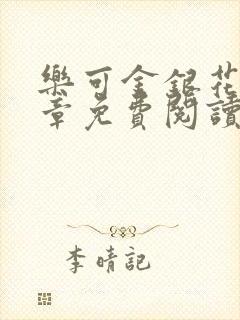 樂可金銀花
章免費閱讀
李晴記